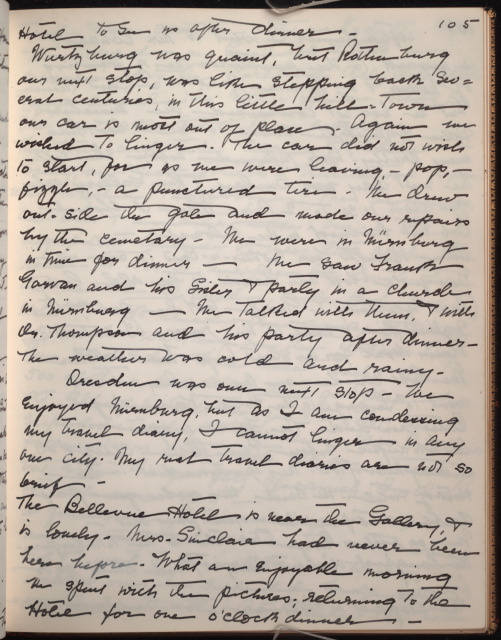 105
Hotel to see us after dinner -
Würtzburg was quaint, but Rothenburg
our next stop, was like stepping back sev=
eral centuries, in this little hill-town
our car is most out of place - Again we
wished to linger. The car did not wish
to start, for as we were leaving, - pop, -
fizzle, - a punctured tire - We drew
out-side the gate and made our repairs
by the cemetary - We were in Nürnburg
in time for dinner - We saw Frank
Garvan and his Sister & party in a church
in Nürnburg - We talked with them, & with
Dr. Thompson and his party after dinner -
The weather was cold and rainy -
Dresden was our next stop - We
enjoyed Nürnburg, but as I am condensing
my travel diary, I cannot linger in any
one city. My real travel diaries are not so
brief -
The Bellevue Hotel is near the Gallery, &
is lovely - Mrs. Sinclair had never been
here before - What an enjoyable morning
we spent with the pictures, returning to the
Hotel for one o'clock dinner -